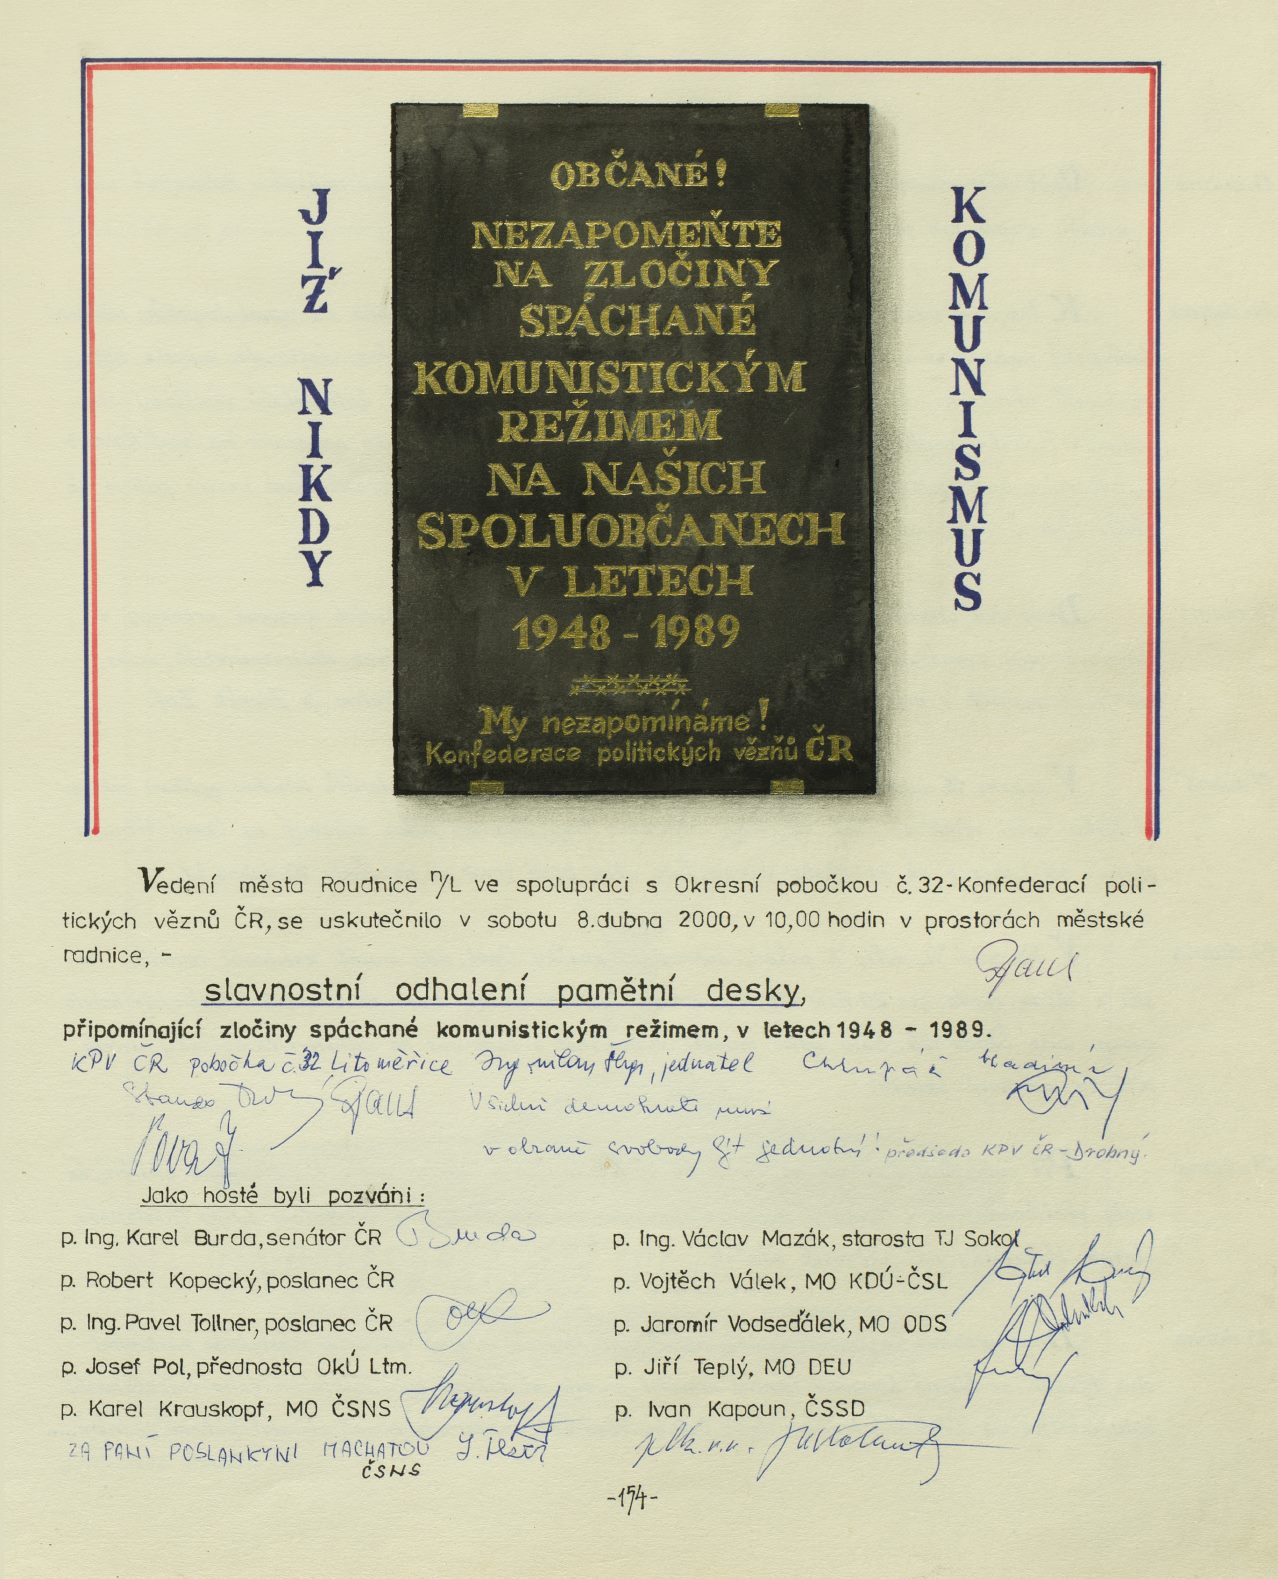 JIŽ NIKDY
KOMUNISMUS
OBČANÉ!
NEZAPOMEŇTE
NA ZLOČINY
SPÁCHANÉ
KOMUNISTICKÝM
REŽIMEM
NA NAŠICH
SPOLUOBČANECH
V LETECH
1948 - 1989
My nezapomínáme!
Konfederace politických vězňů ČR
Vedení města Roudnice n/L ve spolupráci s Okresní pobočkou č. 32-Konfederací poli-
tických věznů ČR, se uskutečnilo v sobotu 8.dubna 2000, v 10,00 hodin v prostorách městské
radnice, -
slavnostní odhalení pamětní desky,
připomínající zločiny spáchané komunistickým režimem, v letech 1948 - 1989.
KPV ČR pobočka č. 32 Litoměřice Ing. Milan, jednatel
Všichni demokraté musí
v obraně svobody být jednotní! předseda KPV ČR - Drobný.
Jako hosté byli pozváni:
p. Ing. Karel Burda, senátor ČR Burda
p. Robert Kopecký, poslanec ČR
p. Ing. Pavel Tollner, poslanec ČR
p. Josef Pol, přednosta OkÚ Ltm.
p. Karel Krauskopf, MO ČSNS
ZA PANÍ POSLANKYNI MACHATOU
ČSNS
p. Ing. Václav Mazák, starosta TJ Sokol
p. Vojtěch Válek, MO KDÚ-ČSL
p. Jaromír Vodseďálek, MO ODS
p. Jiří Teplý, MO DEU
p. Ivan Kapoun, ČSSD
plk. v.v.
-154-